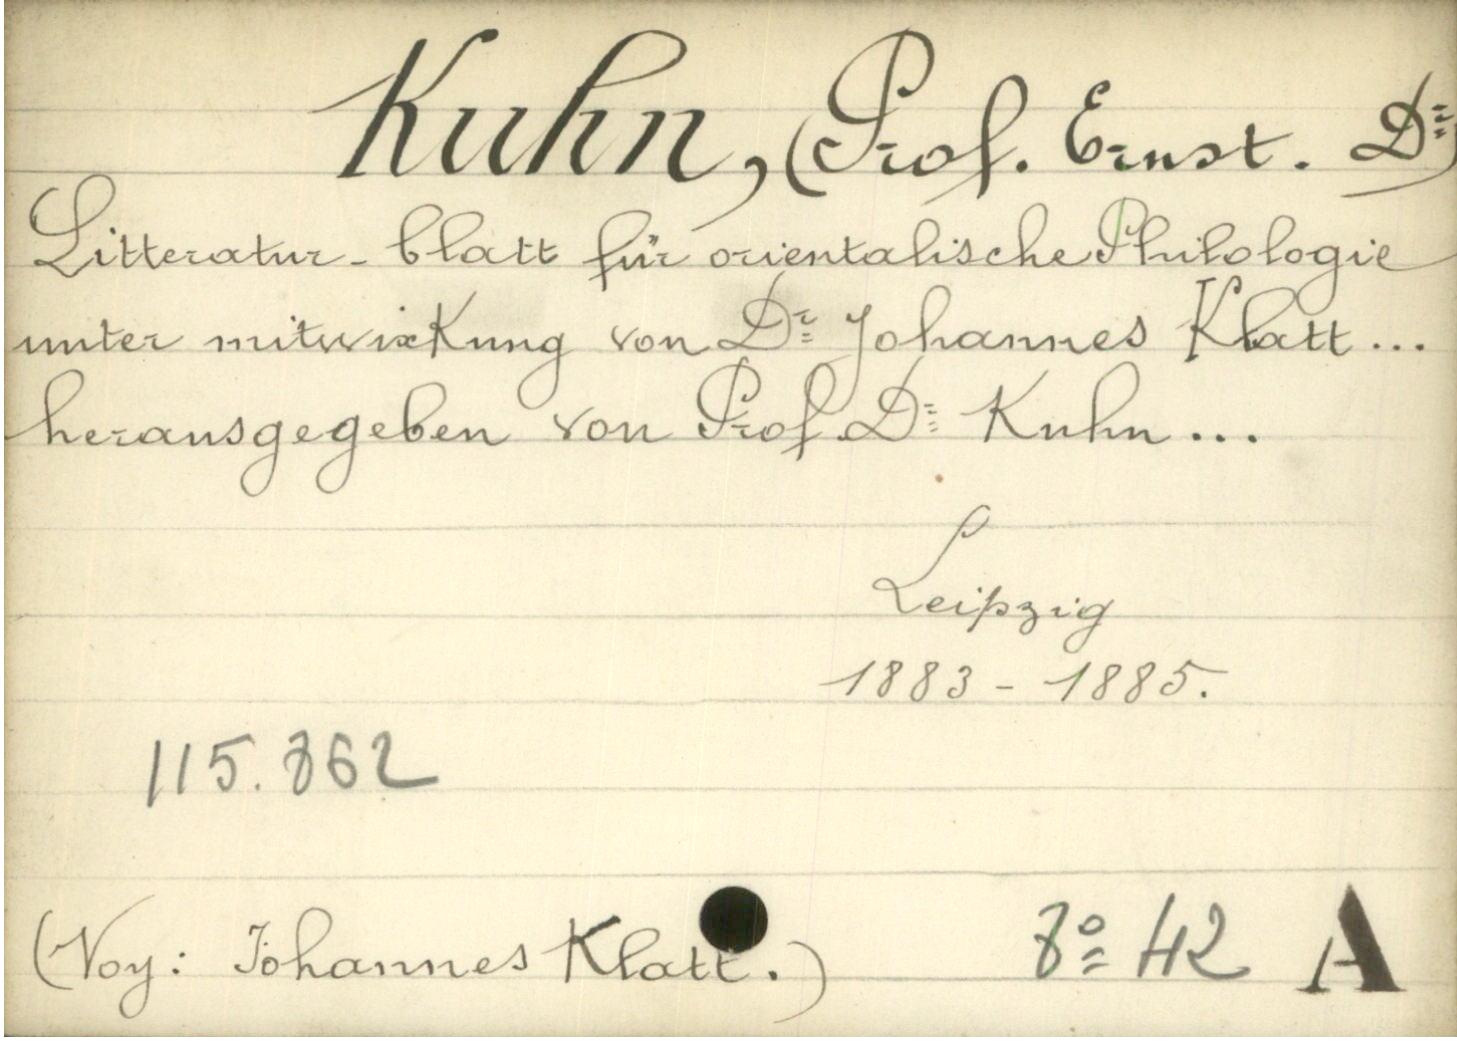 Kuhn, (Prof. Ernst. Dr)
Litteratur-blatt für orientalische Philologie
unter mitwirkung von Dr Johannes Klatt...
herausgegeben von Prof. Dr Kuhn...
Leipzig
1883 - 1885.
115.862
(Voy: Johannes Klatt.) 8º 42 A